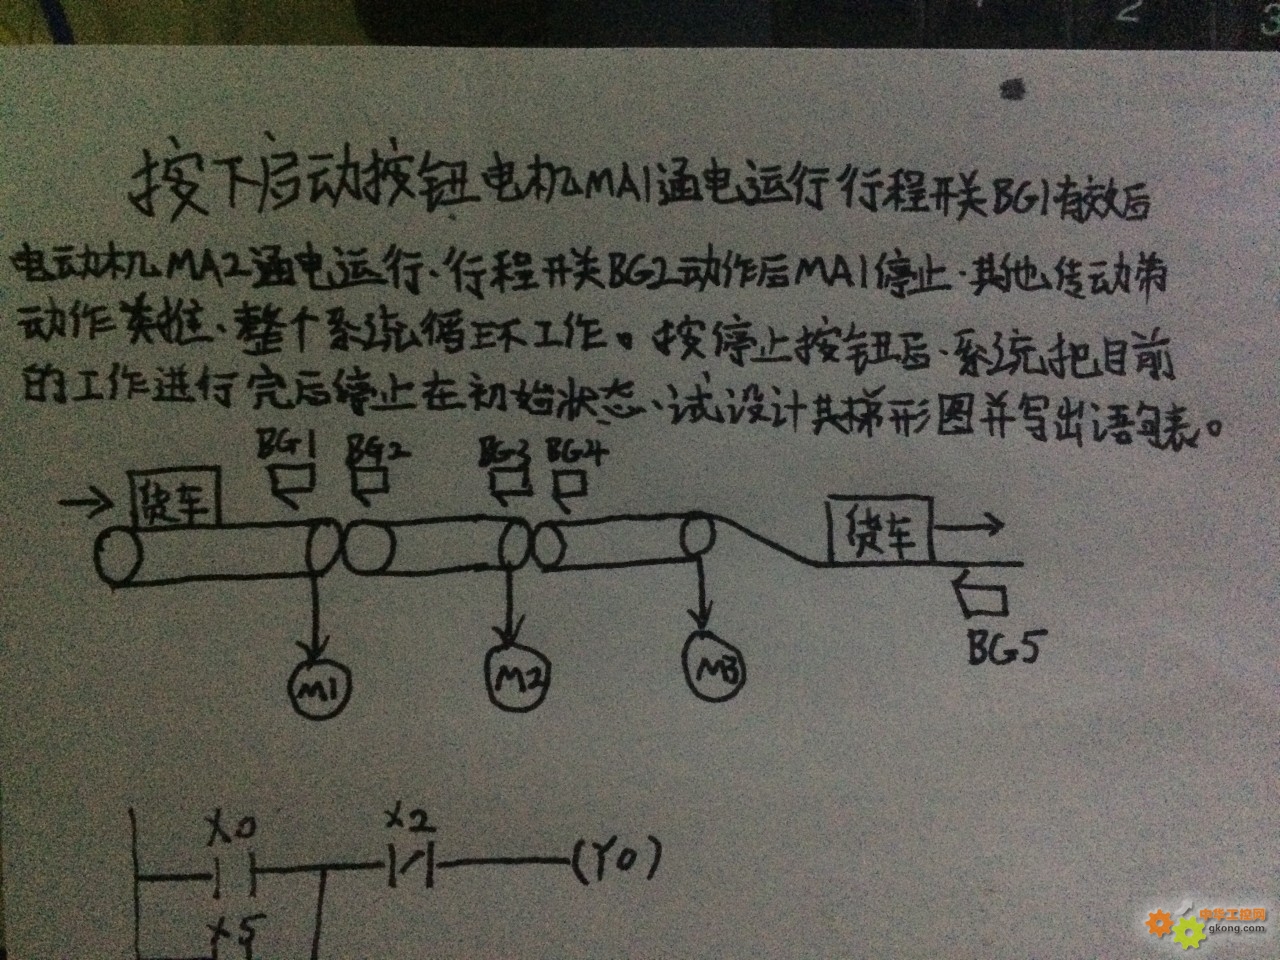 2
3
按下启动按钮电机MA1通电运行行程开关BG1有效后
电动机MA2通电运行、行程开关BG2动作后MA1停止.其他传动带
动作类推、整个系统循环工作。按停止按钮后、系统把目前
的工作进行完后停止在初始状态、试设计其梯形图并写出语句表。
BG1 BG2 BG3 BG4
货车
货车
BG5
M1 M2 M3
X0 X2
(Y0)
X5
中华工控网
gkong.com